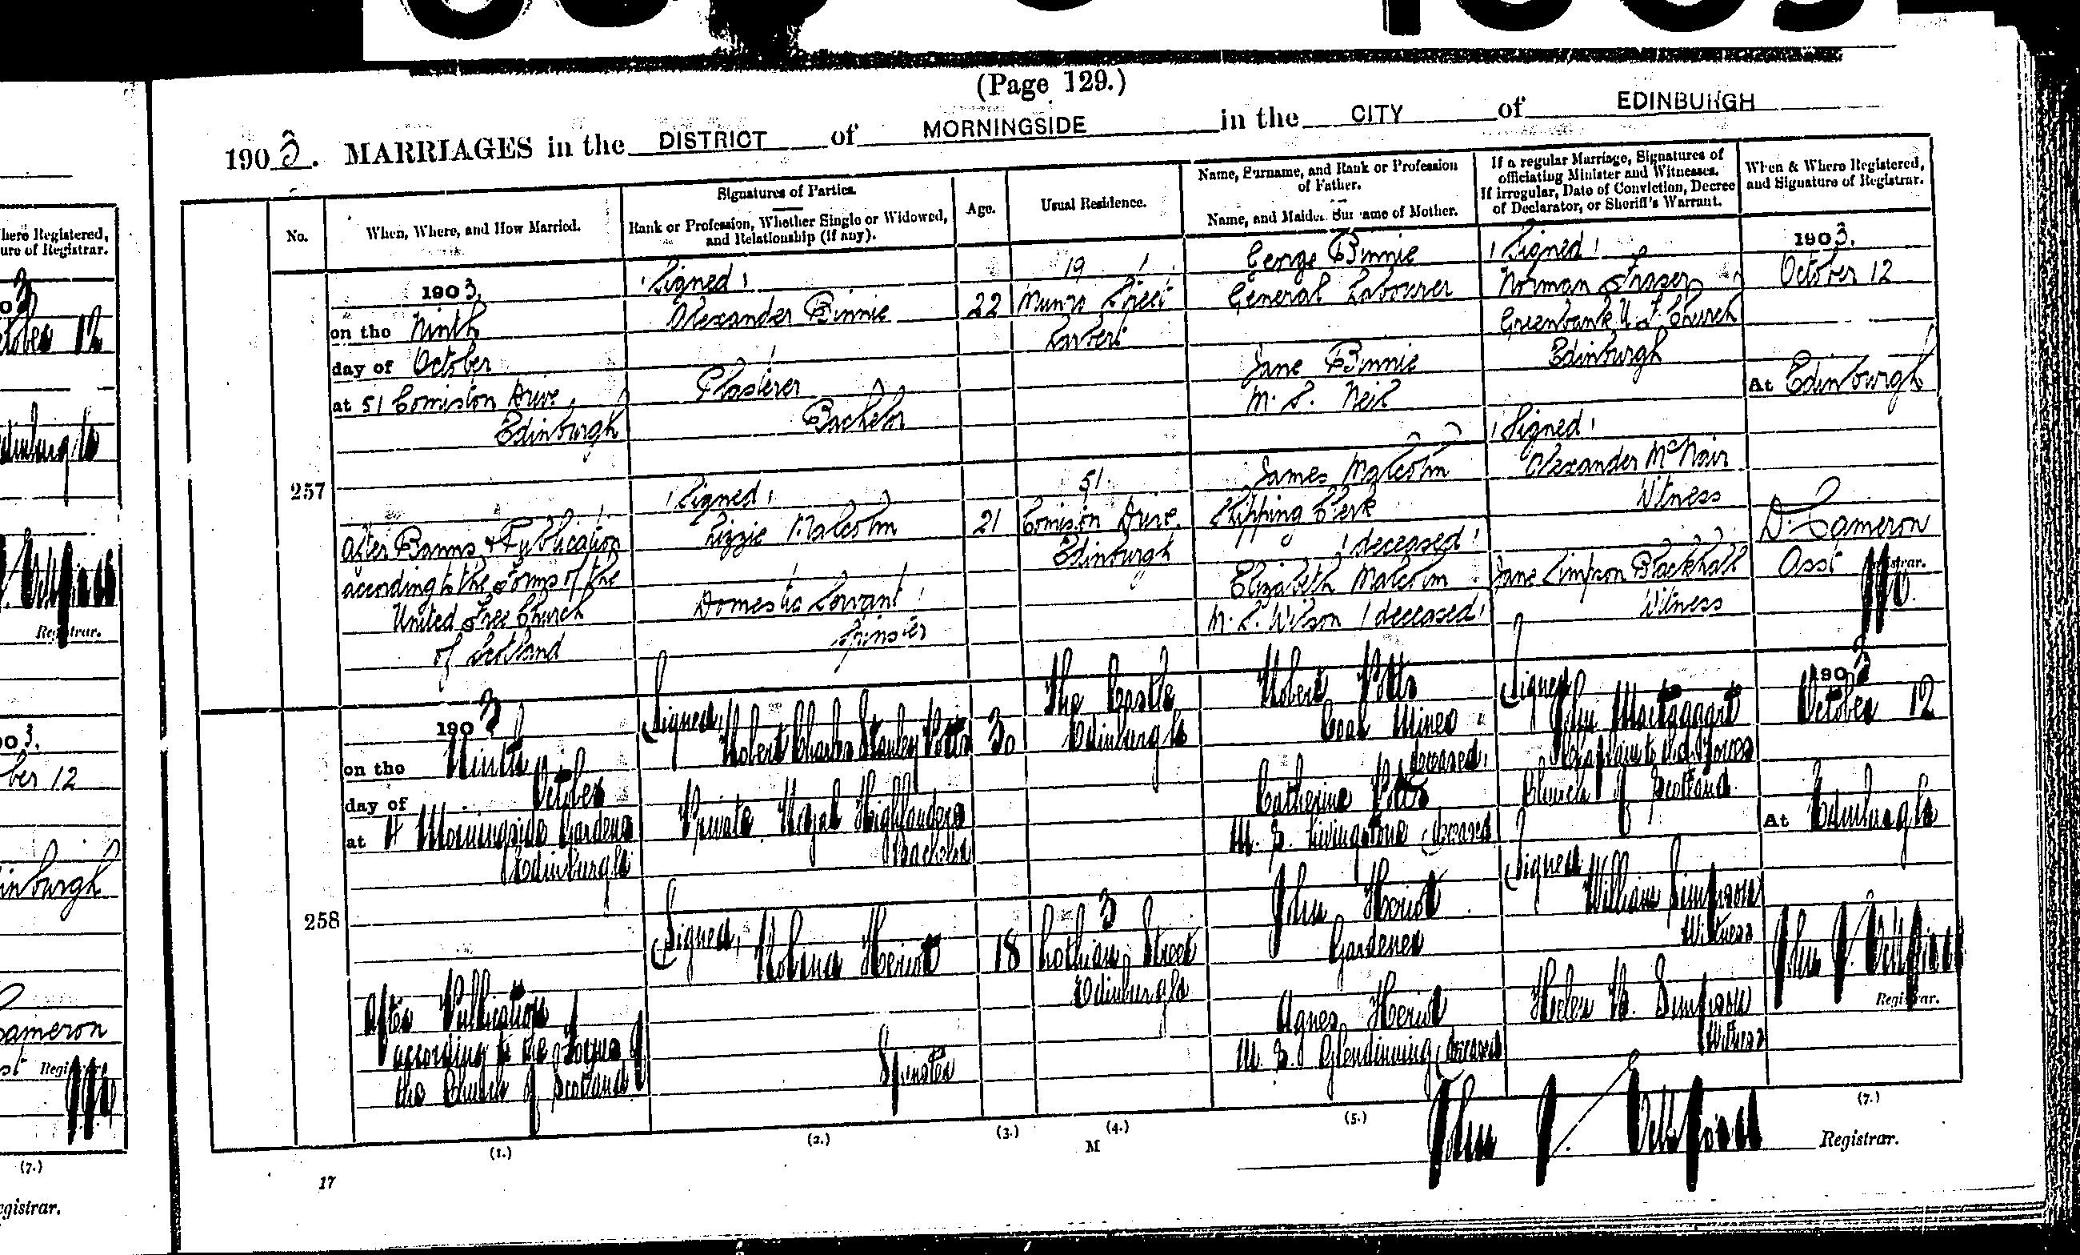 (Page 129.)
1903. MARRIAGES in the DISTRICT of MORNINGSIDE in the CITY of EDINBURGH
No.
When, Where, and How Married.
Signatures of Parties.
Rank or Profession, Whether Single or Widowed,
and Relationship (if any).
Age.
Usual Residence.
Name, Surname, and Rank or Profession
of Father.
Name, and Maiden Surname of Mother.
If a regular Marriage, Signatures of
officiating Minister and Witnesses.
If irregular, Date of Conviction, Decree
of Declarator, or Sheriff's Warrant.
When & Where Registered,
and Signature of Registrar.
257
1903.
on the Ninth
day of October
at 51 Comiston Drive
Edinburgh
After Banns & Publication
according to the Forms of the
United Free Church
of Scotland
(Signed)
Alexander Binnie
Plasterer
Bachelor
(Signed)
Lizzie Malcolm
Domestic Servant
Spinster
22
21
19
Munro Street
Larbert
51
Comiston Drive
Edinburgh
George Binnie
General Labourer
Jane Binnie
M. S. Neil
James Malcolm
Shipping Clerk
(deceased)
Elizabeth Malcolm
M. S. Wilson (deceased)
(Signed)
Norman Fraser
Greenbank U F Church
Edinburgh
(Signed)
Alexander McNair
Witness
Jane Simpson Blackhall
Witness
1903.
October 12
At Edinburgh
D. Cameron
Asst Registrar.
258
1903
on the Ninth
day of October
at 4 Morningside Gardens
Edinburgh
After Publication
according to the Forms of
the Church of Scotland
(Signed)
Robert Charles Stanley Potts
Private Royal Highlanders
Bachelor
(Signed)
Robina Heriot
Spinster
30
18
The Castle
Edinburgh
3
Lothian Street
Edinburgh
Robert Potts
Coal Miner
deceased
Catherine Potts
M. S. Livingstone (deceased)
John Heriot
Gardener
Agnes Heriot
M. S. Glendinning (deceased)
(Signed)
John Mactaggart
Chaplain to H.M. Forces
Church of Scotland
(Signed)
William Simpson
Witness
Helen B. Simpson
Witness
1903
October 12
At Edinburgh
John J.
Registrar.
(1.)
(2.)
(3.)
(4.)
(5.)
(7.)
M
17
John J.
Registrar.